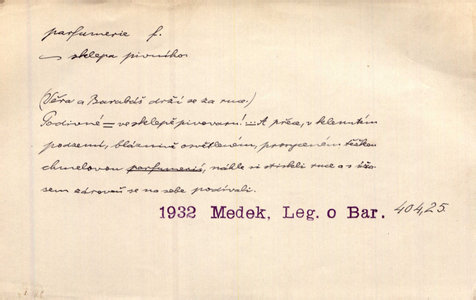 parfumerie f.
~ sklepa pivního
(Věra a Barabáš drží se za ruce.)
Podivné = ve sklepě pivovaru! – A přece, v klenutém
podzemí, bláznivě osvětleném, prosyceném těžkou
chmelovou parfumerií, náhle si stiskli ruce a s úža-
sem zároveň se na sebe podívali.
1932 Medek, Leg. o Bar. 404,25.